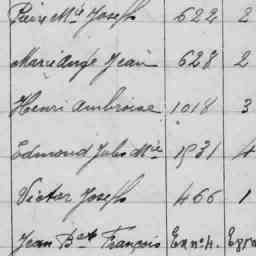 Pierre Mie Joseph 622 2
Marie Ange Jean 628 2
Henri Ambroise 1018 3
Edmond Jules Mie 1531 4
Victor Joseph 466 1
Jean Bte François Ex n° 4.